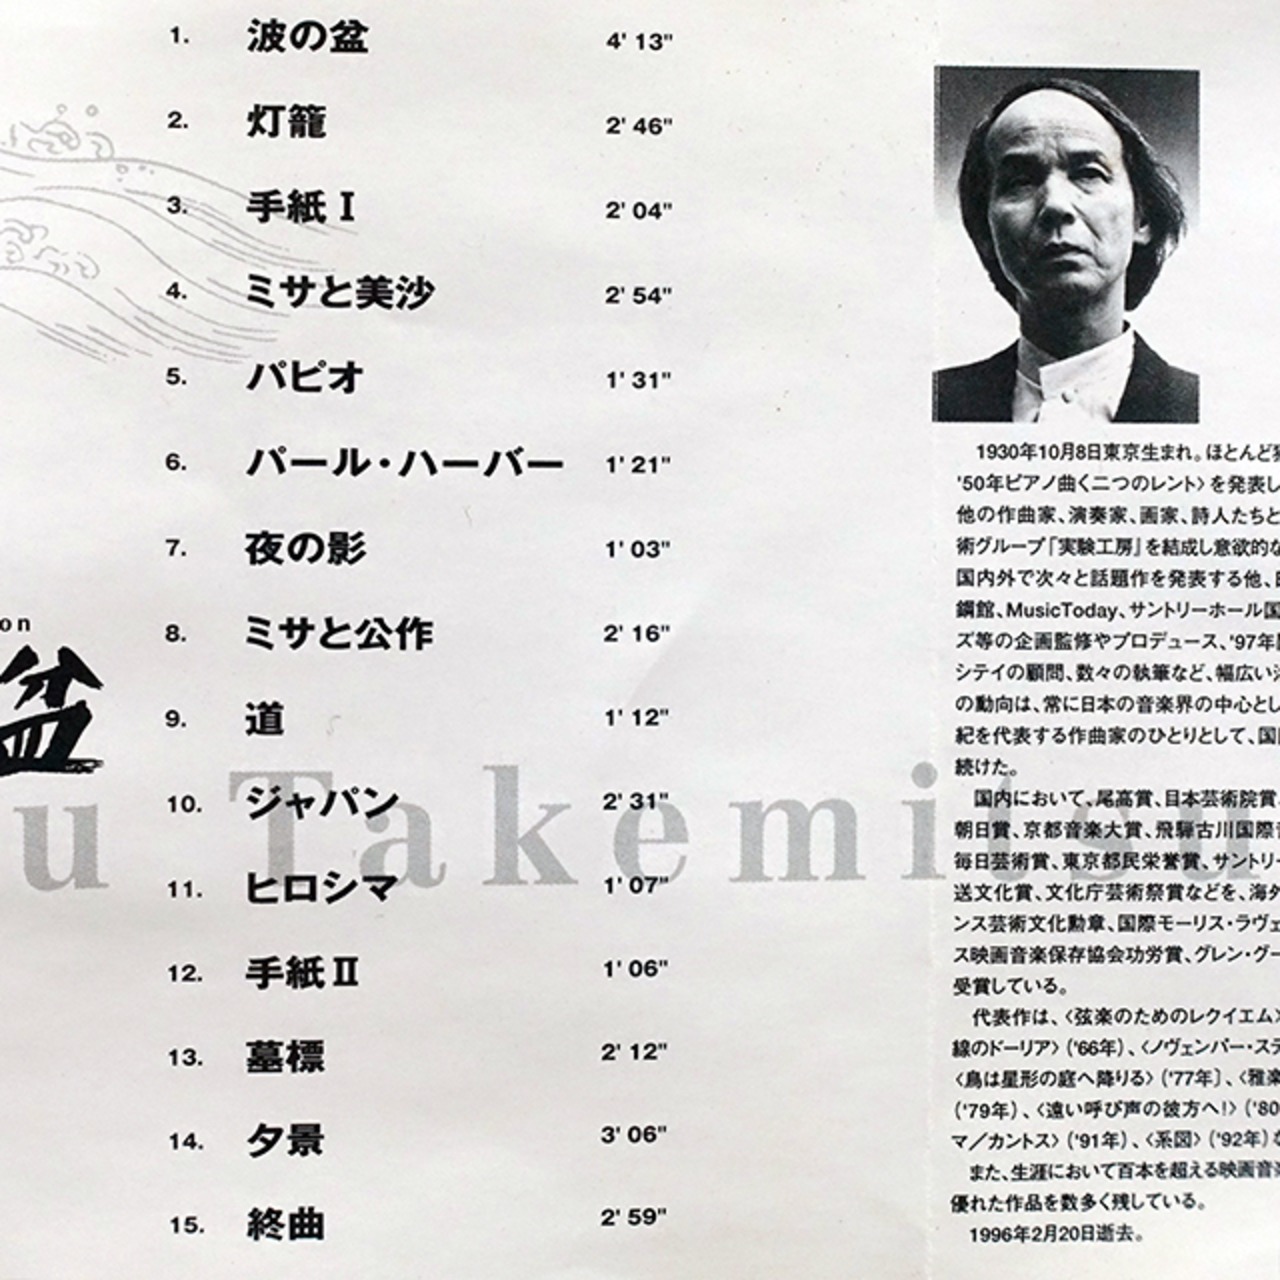 1. 波の盆 4' 13"
2. 灯籠 2' 46"
3. 手紙Ⅰ 2' 04"
4. ミサと美沙 2' 54"
5. パピオ 1' 31"
6. パール・ハーバー 1' 21"
7. 夜の影 1' 03"
8. ミサと公作 2' 16"
9. 道 1' 12"
10. ジャパン 2' 31"
11. ヒロシマ 1' 07"
12. 手紙Ⅱ 1' 06"
13. 墓標 2' 12"
14. 夕景 3' 06"
15. 終曲 2' 59"
on
盆
u Takemitsu
1930年10月8日東京生まれ。ほとんど
'50年ピアノ曲く二つのレント〉を発表し
他の作曲家、演奏家、画家、詩人たちと
術グループ「実験工房」を結成し意欲的な
国内外で次々と話題作を発表する他、
鋼館、MusicToday、サントリーホール国
ズ等の企画監修やプロデュース、'97年
シテイの顧問、数々の執筆など、幅広い
の動向は、常に日本の音楽界の中心とし
紀を代表する作曲家のひとりとして、国
続けた。
国内において、尾高賞、日本芸術院賞、
朝日賞、京都音楽大賞、飛騨古川国際
毎日芸術賞、東京都民栄誉賞、サントリー
送文化賞、文化庁芸術祭賞などを、海外
ンス芸術文化勲章、国際モーリス・ラヴェ
ス映画音楽保存協会功労賞、グレン・グー
受賞している。
代表作は、〈弦楽のためのレクイエム〉
線のドーリア〉('66年)、〈ノヴェンバー・ステ
〈鳥は星形の庭へ降りる〉('77年〕、〈雅楽
('79年)、〈遠い呼び声の彼方へ!〉('80
マ／カントス〉('91年)、〈系図〉('92年)な
また、生涯において百本を超える映画音楽
優れた作品を数多く残している。
1996年2月20日逝去。